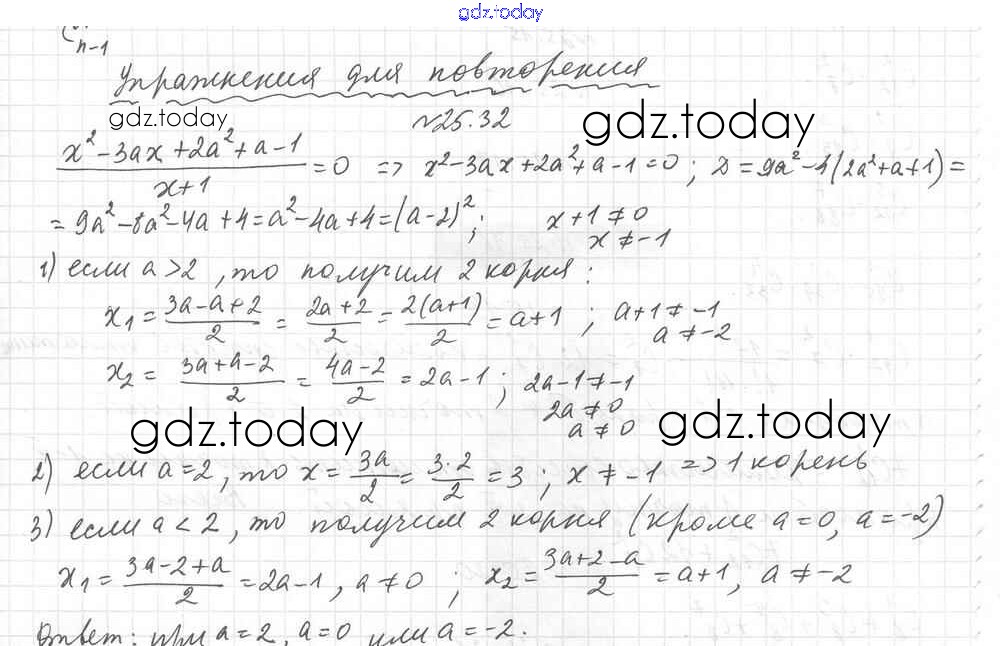 gdz.today
n-1
Упражнения для повторения
gdz.today №25.32 gdz.today
(x² - 3ax + 2a² + a - 1)/(x+1) = 0 => x² - 3ax + 2a² + a - 1 = 0 ; D = 9a² - 4(2a² + a + 1) =
= 9a² - 8a² - 4a + 4 = a² - 4a + 4 = (a-2)² ; x + 1 ≠ 0
x ≠ -1
1) если a > 2, то получим 2 корня :
x₁ = (3a - a + 2)/2 = (2a + 2)/2 = 2(a+1)/2 = a+1 ; a+1 ≠ -1
a ≠ -2
x₂ = (3a + a - 2)/2 = (4a - 2)/2 = 2a - 1 ; 2a - 1 ≠ -1
2a ≠ 0
a ≠ 0
gdz.today gdz.today
2) если a = 2, то x = 3a/2 = 3·2/2 = 3 ; x ≠ -1 => 1 корень
3) если a < 2, то получим 2 корня (кроме a = 0, a = -2)
x₁ = (3a - 2 + a)/2 = 2a - 1, a ≠ 0 ; x₂ = (3a + 2 - a)/2 = a + 1, a ≠ -2
Ответ: при a = 2, a = 0 или a = -2.